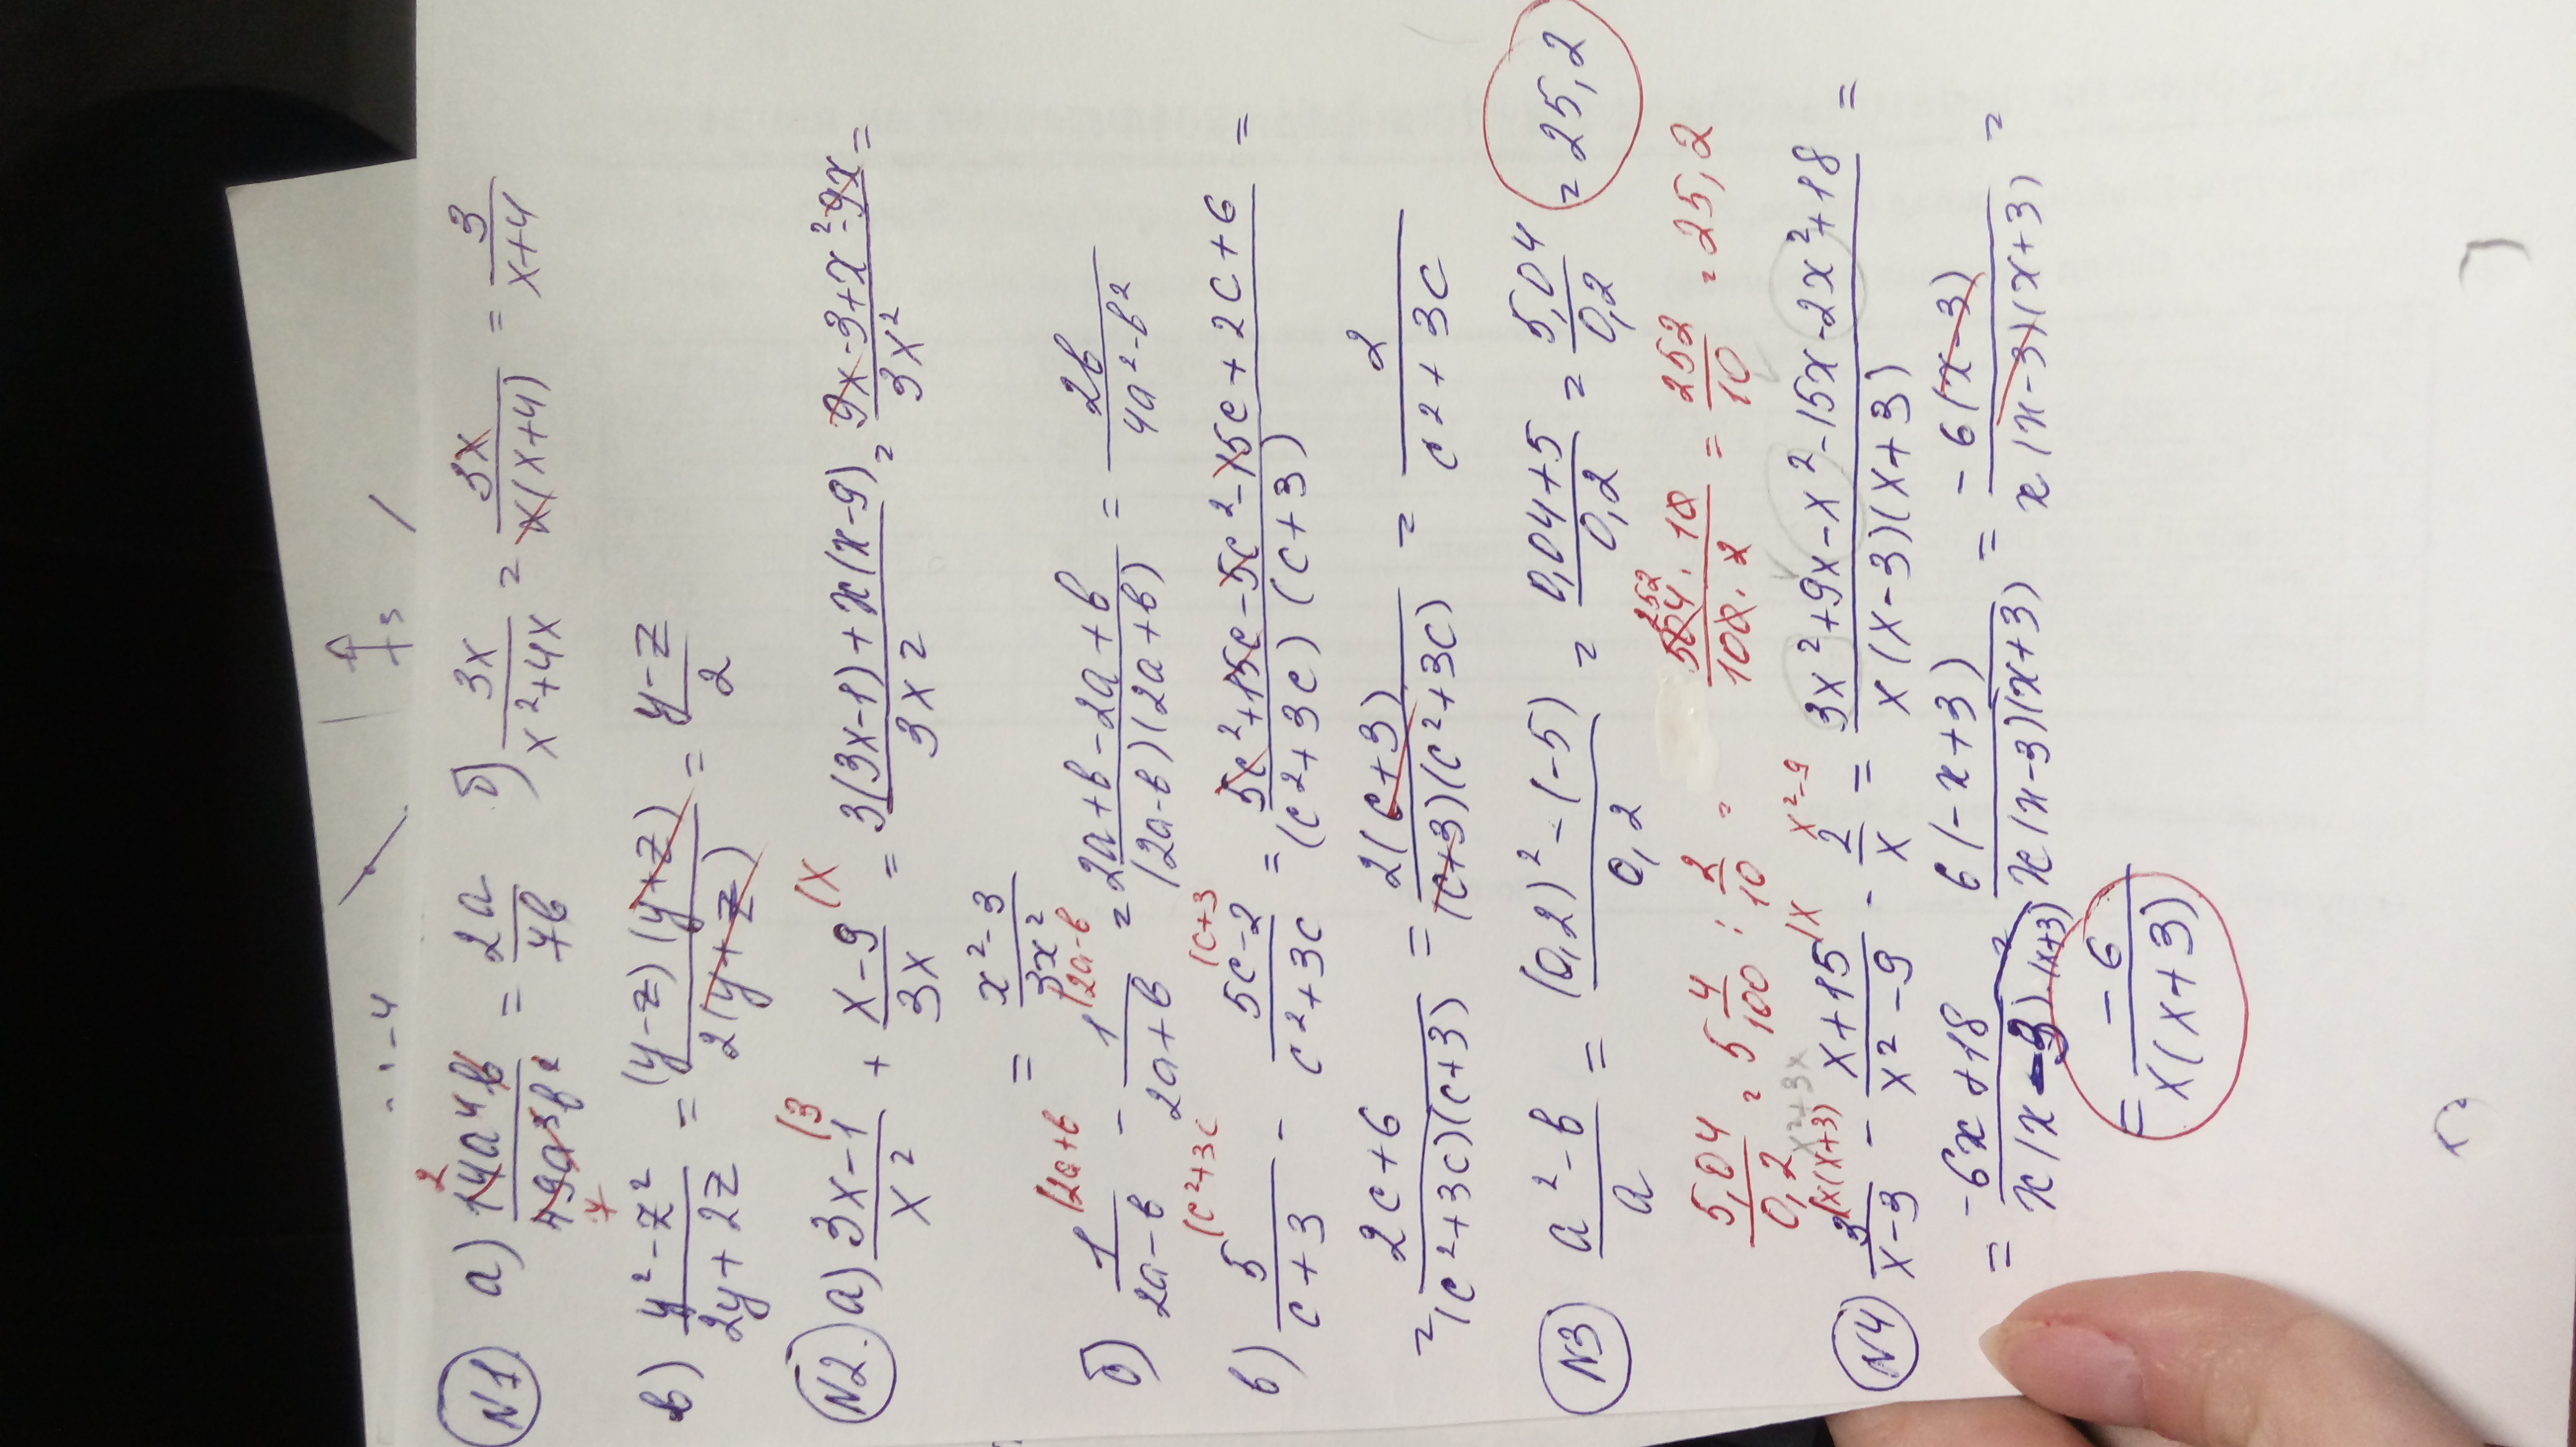 N1 а) 14a⁴b / 49a³b² = 2a / 7b б) 3x / x²+4x = 3x / x(x+4) = 3 / x+4
2
7
в) y²-z² / 2y+2z = (y-z)(y+z) / 2(y+z) = y-z / 2
N2. а) 3x-1 / x² (3 + x-9 / 3x (x = 3(3x-1)+x(x-9) / 3x² = 9x-3+x²-9x / 3x² =
= x²-3 / 3x²
б) 1 / 2a-b (2a+b - 1 / 2a+b (2a-b = 2a+b-2a+b / (2a-b)(2a+b) = 2b / 4a²-b²
в) 5 / c+3 (c²+3c - 5c-2 / c²+3c (c+3 = 5c²+15c-5c²-15c+2c+6 / (c²+3c)(c+3) =
= 2c+6 / (c²+3c)(c+3) = 2(c+3) / (c+3)(c²+3c) = 2 / c²+3c
N3 a²-b / a = (0,2)²-(-5) / 0,2 = 0,04+5 / 0,2 = 5,04 / 0,2 = 25,2
5,04 / 0,2 = 5 4/100 : 2/10 = 504 · 10 / 100 · 2 = 252 / 10 = 25,2
252
x²+3x
N4 3 / x-3 (x(x+3) - x+15 / x²-9 (x - 2 / x x²-9 = 3x²+9x-x²-15x-2x²+18 / x(x-3)(x+3) =
= -6x+18 / x(x-3)(x+3) = 6(-x+3) / x(x-3)(x+3) = -6(x-3) / x(x-3)(x+3) =
= -6 / x(x+3)